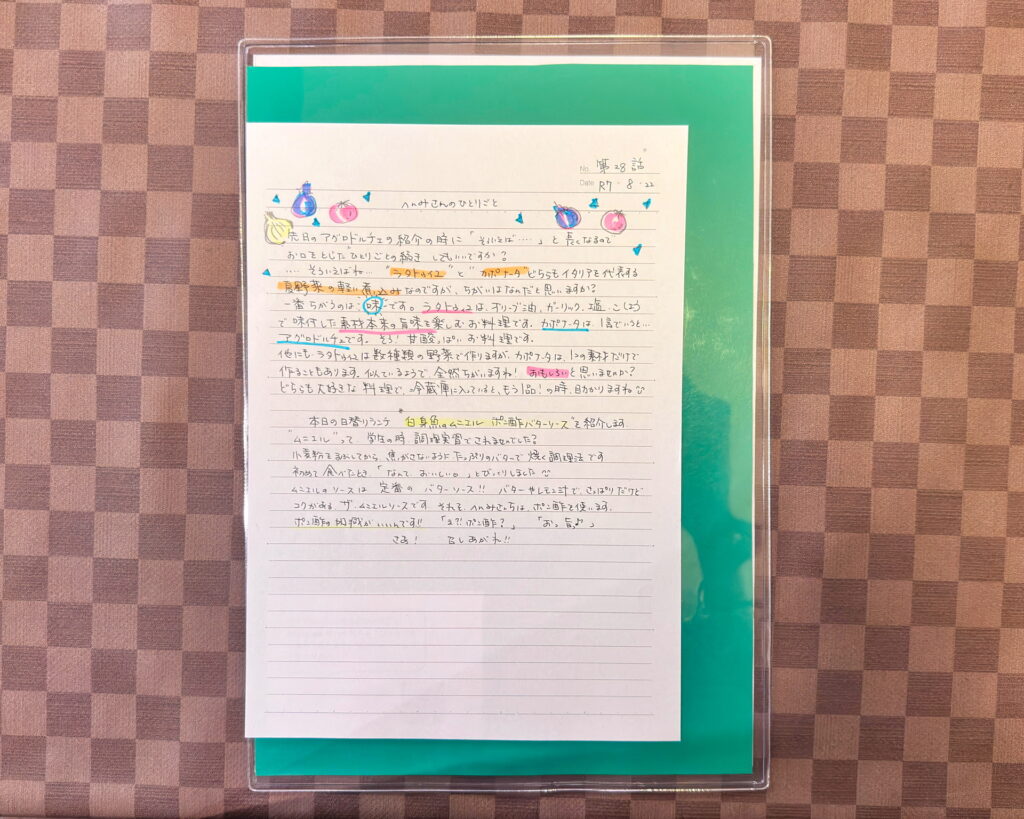 No. 第28話
Date R7・8・22
へnみさんのひとりごと
先日のアグロドルチェの紹介の時に「そういえば‥‥」と長くなるので
お口をとじた"ひとりごとの続き してもいいですか？
‥‥ そういえばね‥‥"ラタトゥイユ"と"カポナータ"どちらもイタリアを代表する
夏野菜の軽い煮込みなのですが、ちがいはなんだと思いますか？
一番ちがうのは、味です。ラタトゥイユは、オリーブ油、ガーリック、塩、こしょう
で味付した素材本来の旨味を楽しむお料理です。カポナータは、1言でいうと…
アグロドルチェです。そう！甘酸っぱい お料理です。
他にも ラタトゥイユは数種類の野菜で作りますが、カポナータは、1つの素材だけで
作ることもあります。似ているようで 全然ちがいますね！おもしろいと思いませんか？
どちらも大好きな 料理で、冷蔵庫に入っていると、もう1品！の時、助かりますね
本日の日替りランチ "白身魚のムニエル ポン酢バターソース"を紹介します。
"ムニエル"って、学生の時 調理実習でされませんでした？
小麦粉をまぶしてから、焦がさないように たっぷりのバターで 焼く調理法です
初めて食べたとき「なんて、おいしいの。」とびっくりしました
ムニエルのソースは 定番の バターソース!! バターやレモン汁で、さっぱりだけど
コクがある、ザ・ムニエルソースです それを、へnみさんちは、ポン酢を使います。
ポン酢の がいいんです!! 「え?! ポン酢？」 「おっ、旨っ♪」
さあ！ 召しあがれ!!